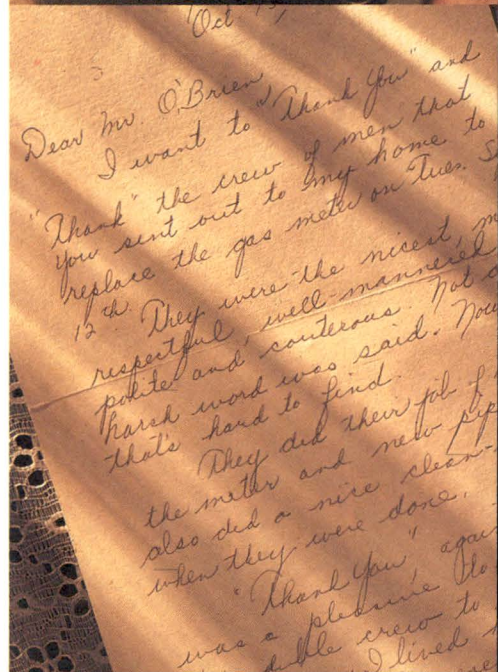 Oct
Dear Mr. O'Brien
I want to "Thank You" and
"Thank" the crew of men that
you sent out to my home to
replace the gas meter on Tues.
12th. They were the nicest,
respectful, well-mannered
polite and courterous. Not a
harsh word was said. Now
that's hard to find.
They did their job of
the meter and new pip
also did a nice clean-
when they were done.
"Thank You" again
was a pleasure to
crew to
I lived